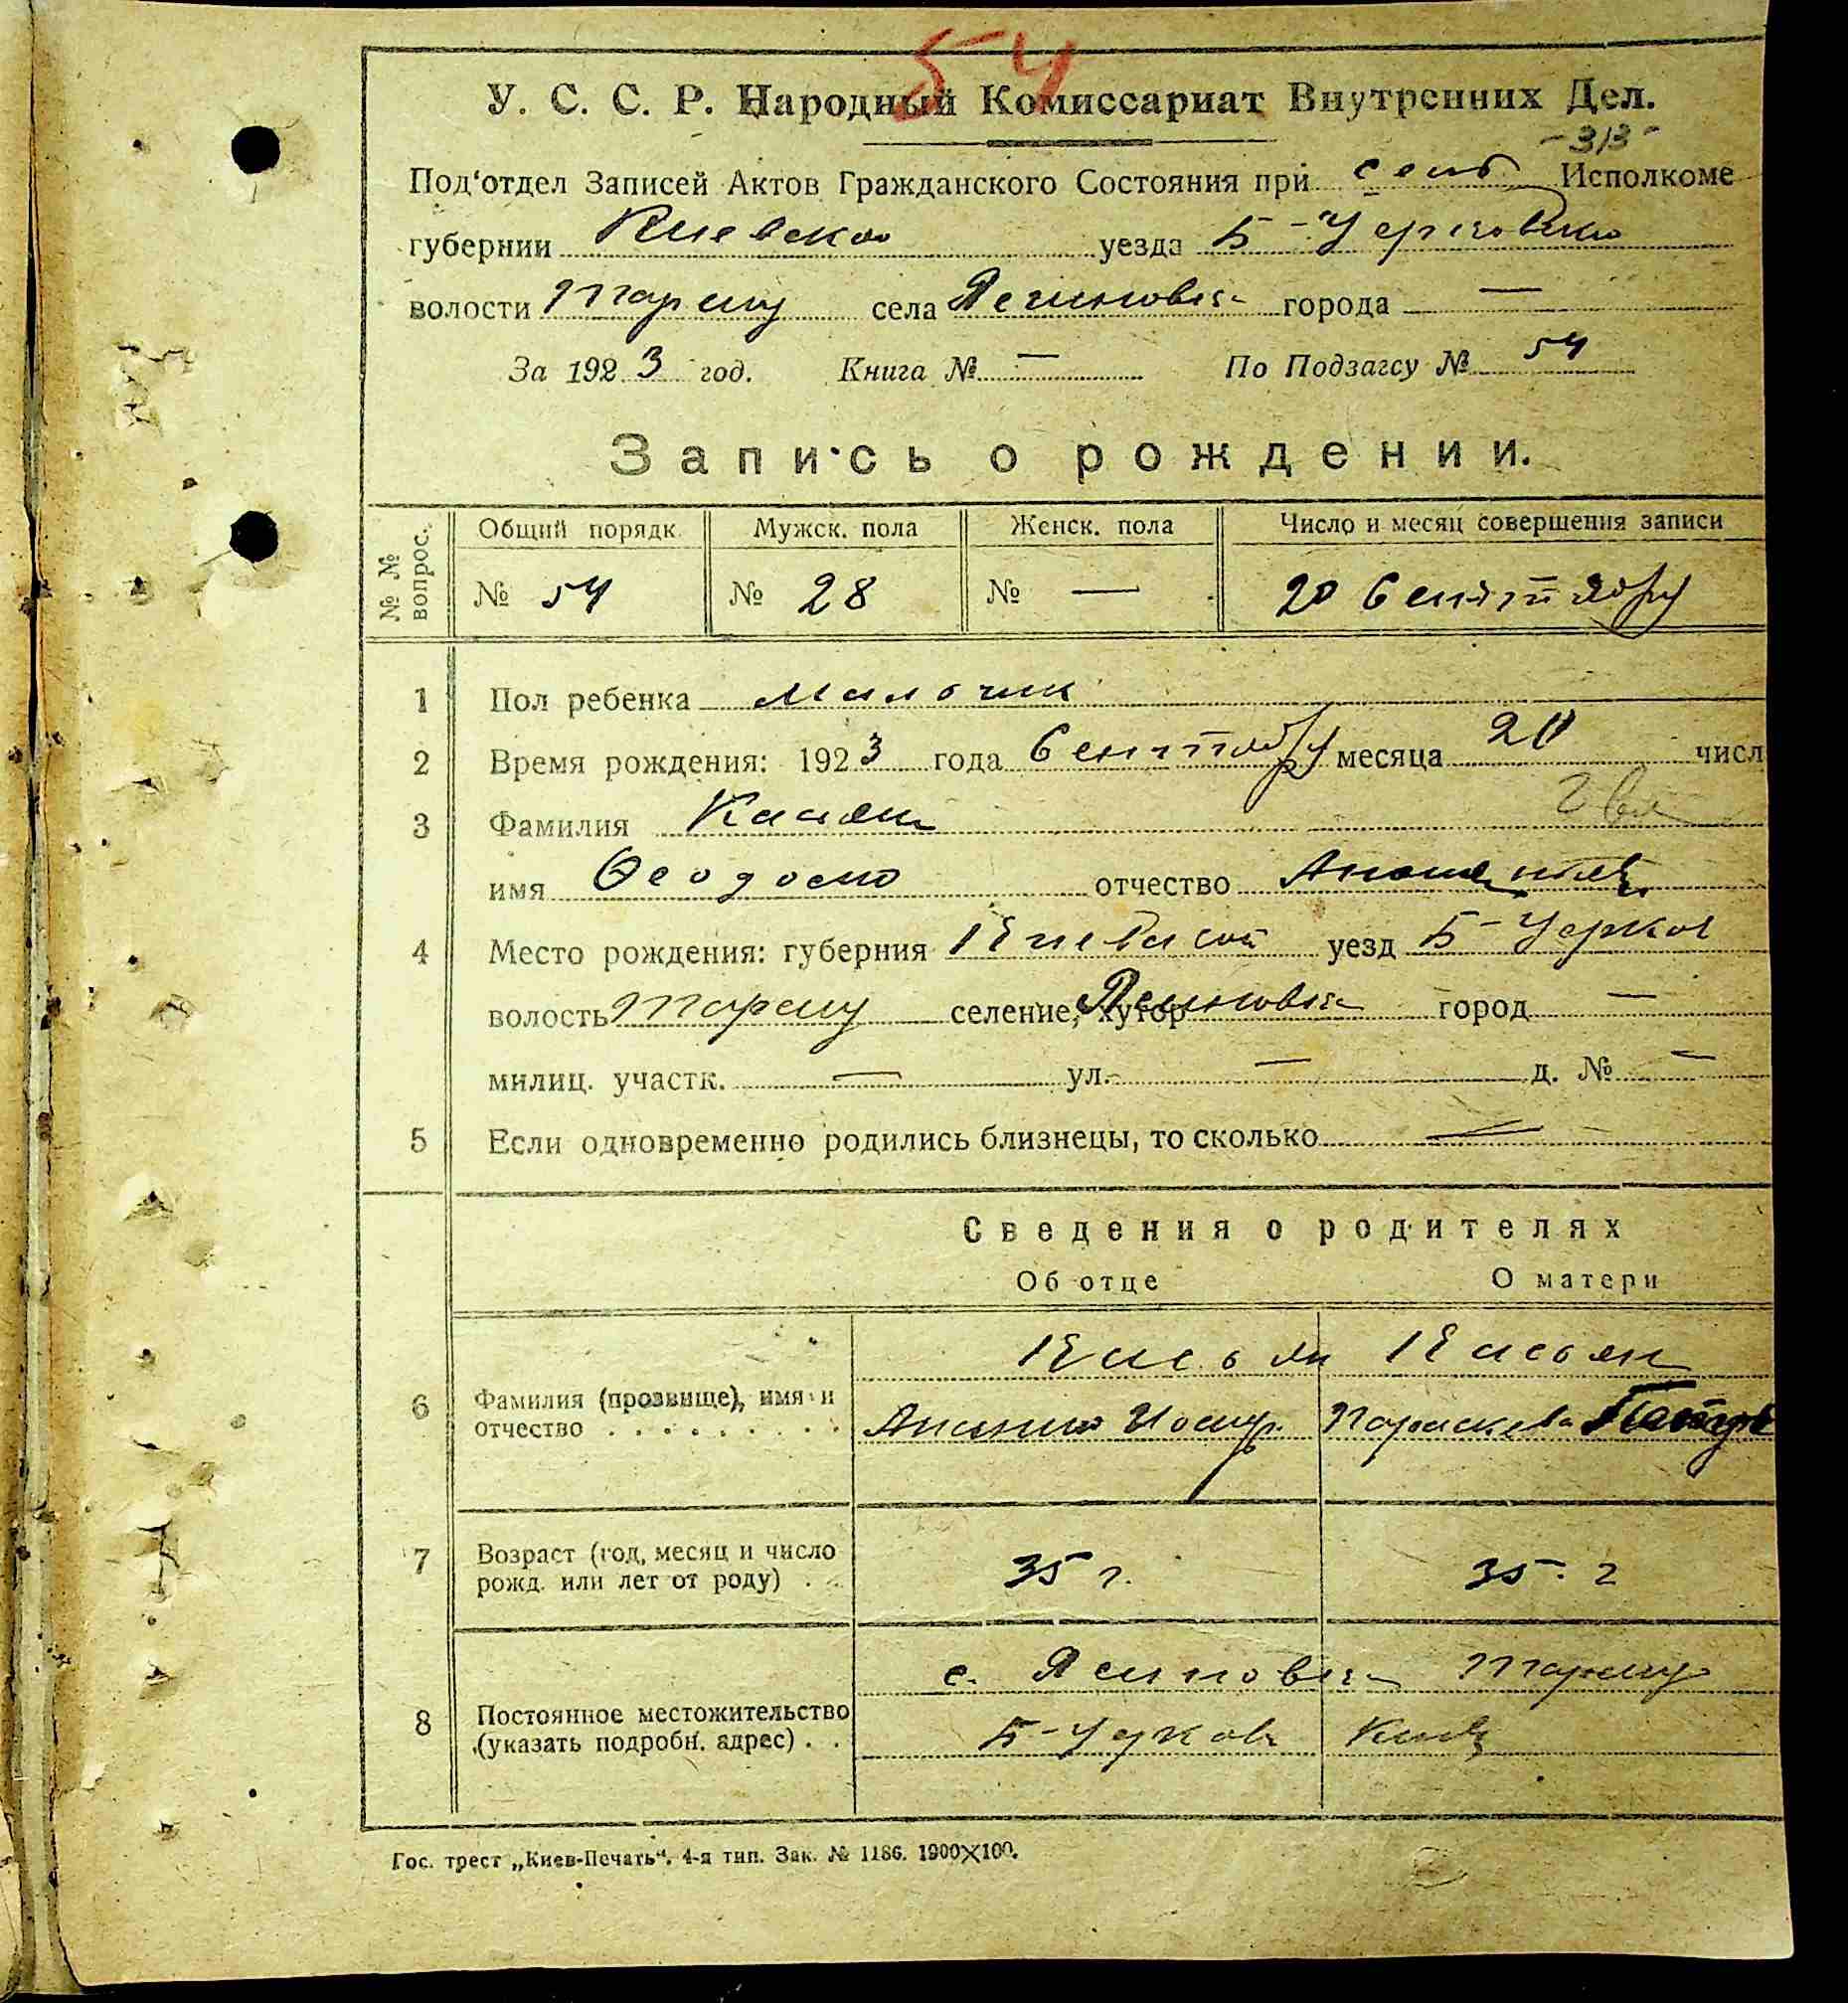 54
У. С. С. Р. Народный Комиссариат Внутренних Дел.
-313-
Под'отдел Записей Актов Гражданского Состояния при сель Исполкоме
губернии Киевской уезда Б-Церковско
волости села города —
За 1923 год. Книга № — По Подзагсу № 54
Запись о рождении.
№ № вопрос. Общий порядк. Мужск. пола Женск. пола Число и месяц совершения записи
№ 54 № 28 № — 20 Сентября
1 Пол ребенка Мальчик
2 Время рождения: 1923 года Сентября месяца 20 числ
3 Фамилия Касьян
имя Феодосий отчество
4 Место рождения: губерния Киевской уезд Б-Церков
волость селение, хутор город —
милиц. участк. — ул. — д. № —
5 Если одновременно родились близнецы, то сколько —
Сведения о родителях
Об отце О матери
Касьян Касьян
6 Фамилия (прозвище), имя и
отчество . . . . . . . . . Ананий Иосиф. Параскева
7 Возраст (год, месяц и число
рожд. или лет от роду) . . 35 г. 35. г
с.
8 Постоянное местожительство
(указать подробн. адрес) . . Б-Церков Киев
Гос. трест „Киев-Печать“. 4-я тип. Зак. № 1186. 1900X100.